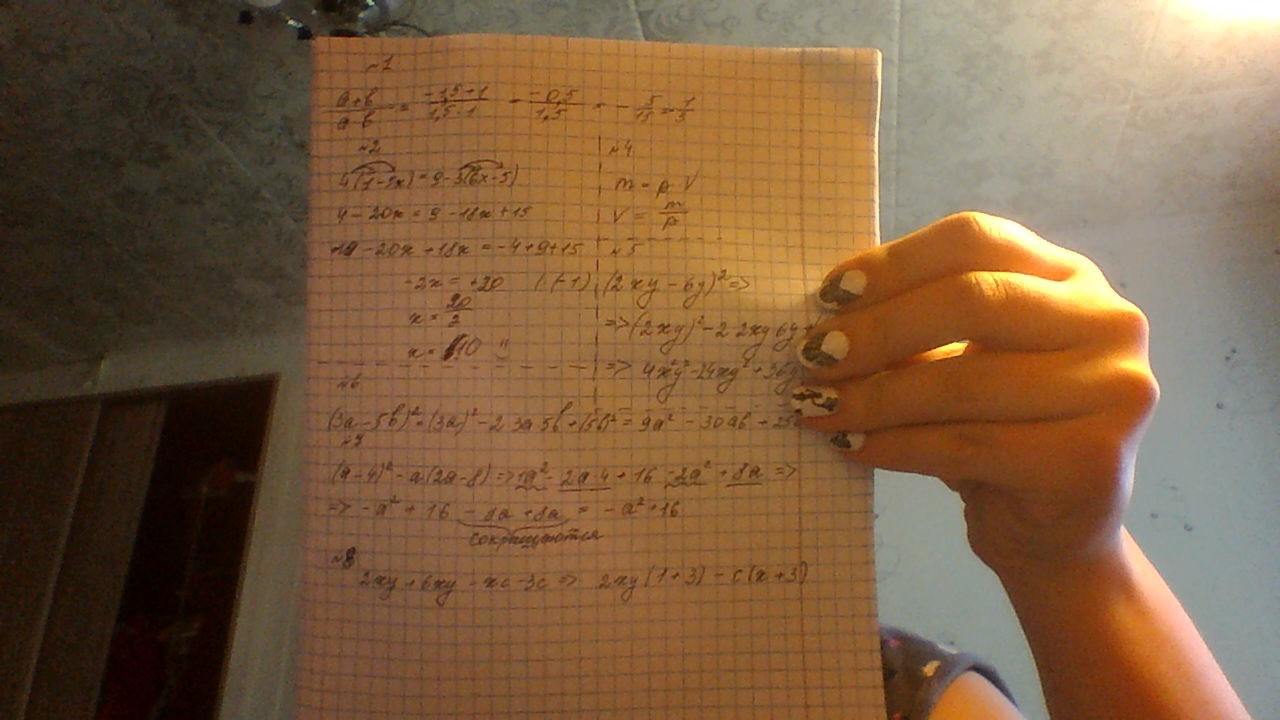 №1
(a+b)/(a-b) = (-1,5+1)/(1,5-1) = (-0,5)/(1,5) = - 5/15 = 1/3
№2
4(1-5x)=9-3(6x-5)
4-20x=9-18x+15
-20x+18x=-4+9+15
-2x=+20 (:(-1)
x=20/2
x=10
№4
m=ρV
V=m/ρ
№5
(2xy-6y)²=>
=>(2xy)²-2 2xy 6y+
=> 4x²y²-24xy²+36y
№6
(3a-5b)²=(3a)²-2 3a 5b+(5b)²=9a²-30ab+25b
№7
(a-4)²-a(2a-8)=>1a²-2a4+16-2a²+8a=>
=>-a²+16-8a+8a=-a²+16
сокращаются
№8
2xy+6xy-xc-3c=> 2xy(1+3)-c(x+3)